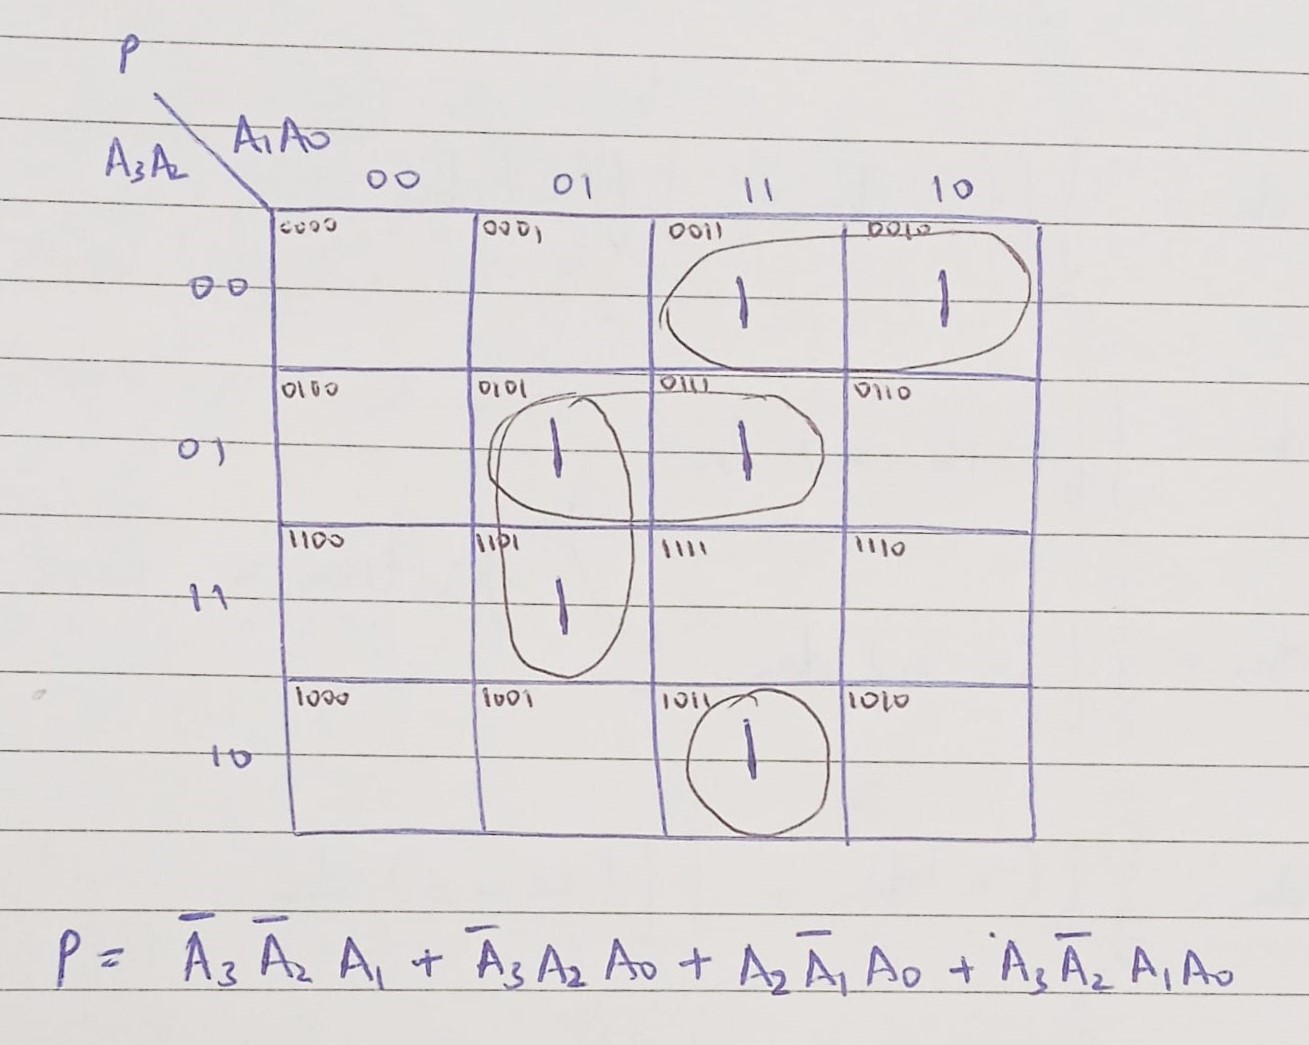 P
A₁A₀
A₃A₂
00 01 11 10
0000 0001 0011 0010
00 1 1
0100 0101 0111 0110
01 1 1
1100 1101 1111 1110
11 1
1000 1001 1011 1010
10 1
P = A̅₃ A̅₂ A₁ + A̅₃ A₂ A₀ + A₂ A̅₁ A₀ + A₃ A̅₂ A₁ A₀